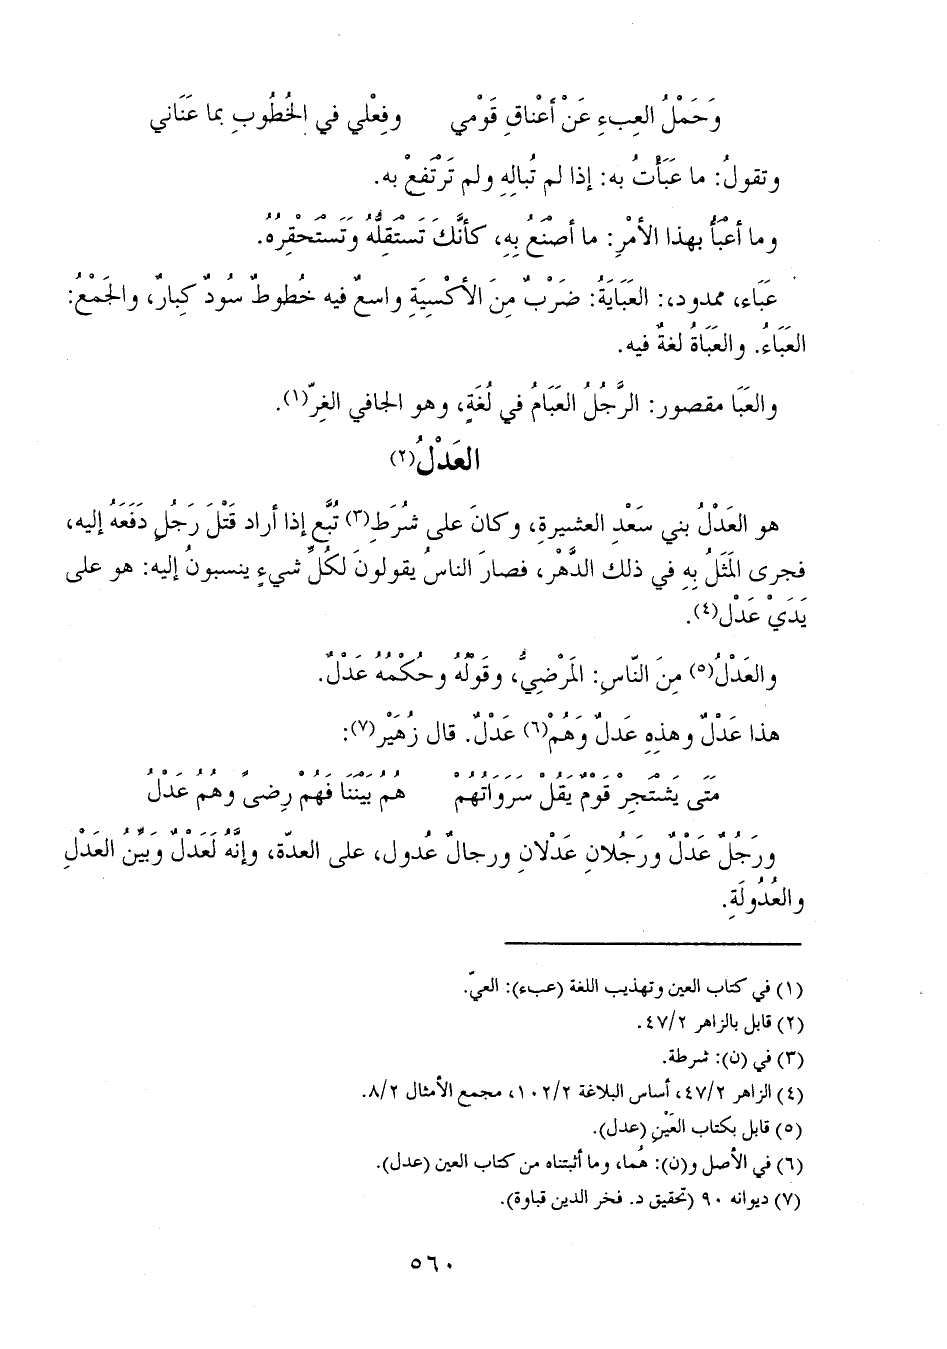 وَحَمْلُ العِبءِ عَنْ أَعْناقِ قَوْمي وفِعْلي في الخُطُوبِ بما عَنَاني
وتقولُ: ما عبَأْتُ به: إذا لم تُبالِهِ ولم تَرْتَفعْ به.
وما أعْبَأُ بهذا الأمْرِ: ما أصْنَعُ بِهِ، كأنَّكَ تَسْتَقِلُّهُ وتَسْتَحْقِرُهُ.
عَبَاء، ممدود،: العَبَايَةُ: ضَرْبٌ مِنَ الأكْسِيَةِ واسعٌ فيه خُطوطٌ سُودٌ كِبارٌ، والجَمْعُ:
العَبَاءُ. والعَبَاةُ لغةٌ فيه.
والعَبَا مقصور: الرَّجُلُ العَبَامُ في لُغَةٍ، وهو الجافي الغِرّ(١).
العَدْلُ(٢)
هو العَدْلُ بني سَعْدِ العشيرةِ، وكانَ على شُرَطِ(٣) تُبَّع إذا أراد قَتْلَ رَجُلٍ دَفَعَهُ إليه،
فجرى المَثَلُ بِهِ في ذلك الدَّهْر، فصارَ الناسُ يقولونَ لكُلِّ شيءٍ ينسبونُ إليه: هو على
يَدَيْ عَدْل(٤).
والعَدْلُ(٥) مِنَ النّاسِ: المَرْضِيُّ، وقَوْلُهُ وحُكْمُهُ عَدْلٌ.
هذا عَدْلٌ وهذِهِ عَدلٌ وَهُمْ(٦) عَدْلٌ. قال زُهَيْر(٧):
مَتَى يَشْتَجِرْ قَوْمٌ يَقُلْ سَرَوَاتُهُمْ هُمُ بَيْنَنَا فَهُم رِضىً وهُمُ عَدْلُ
ورَجُلٌ عَدْلٌ ورَجُلانِ عَدْلانِ ورجالٌ عُدول، على العدّة، وإنَّهُ لَعَدْلٌ وَبَيِّنُ العَدْلِ
والعُدُولَةِ.
(١) في كتاب العين وتهذيب اللغة (عبء): العيّ.
(٢) قابل بالزاهر ٤٧/٢.
(٣) في (ن): شرطة.
(٤) الزاهر ٤٧/٢، أساس البلاغة ١٠٢/٢، مجمع الأمثال ٨/٢.
(٥) قابل بكتاب العَيْنِ (عدل).
(٦) في الأصل و(ن): هُما، وما أثبتناه من كتاب العين (عدل).
(٧) ديوانه ٩٠ (تحقيق د. فخر الدين قباوة).
٥٦٠